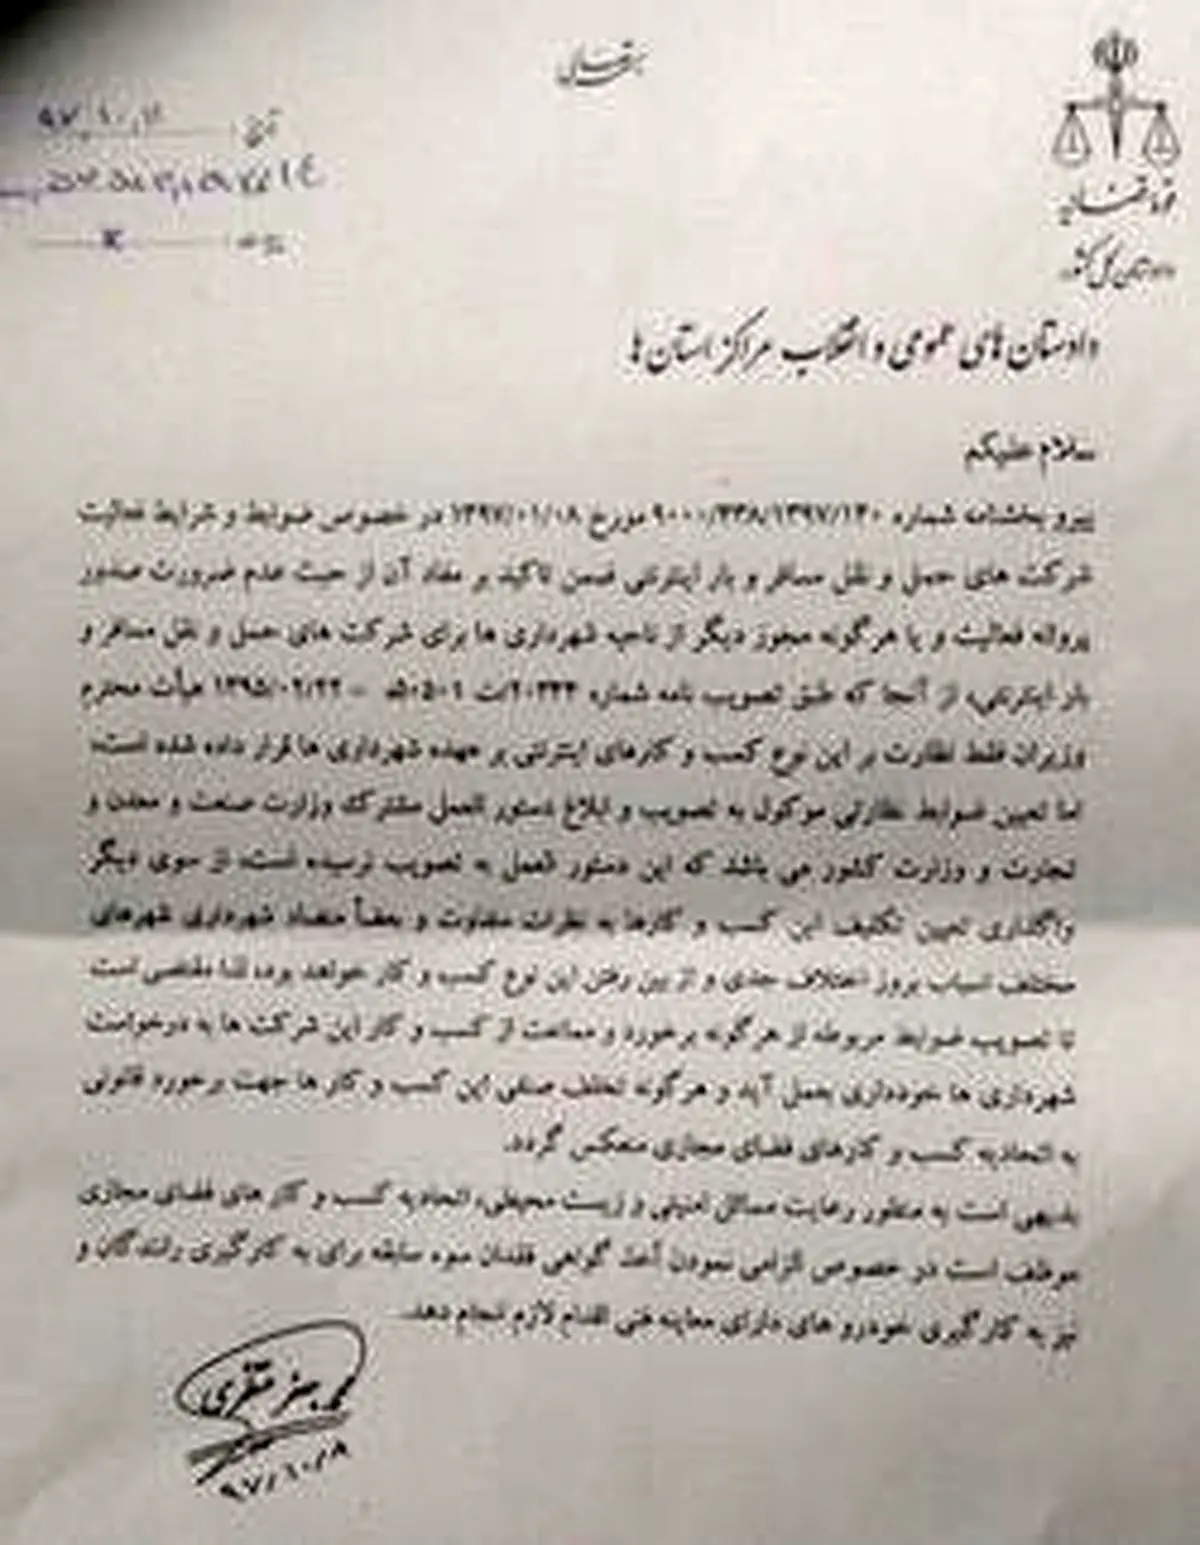 بسمه تعالی
قوه قضائیه
دادستان کل کشور
تاریخ
دادستان های عمومی و انقلاب مراکز استان ها
سلام علیکم
پیرو بخشنامه شماره ۹۰۰۰/۳۳۸/۱۳۹۷/۱۳۰ مورخ ۱۳۹۷/۰۱/۰۸ در خصوص ضوابط و شرایط فعالیت
شرکت های حمل و نقل مسافر و بار اینترنتی ضمن تاکید بر مفاد آن از حیث عدم ضرورت صدور
پروانه فعالیت و یا هرگونه مجوز دیگر از ناحیه شهرداری ها برای شرکت های حمل و نقل مسافر و
بار اینترنتی، از آنجا که طبق تصویب نامه شماره هیأت محترم
وزیران فقط نظارت بر این نوع کسب و کارهای اینترنتی بر عهده شهرداری ها قرار داده شده است،
اما تعیین ضوابط نظارتی موکول به تصویب و ابلاغ دستور العمل مشترک وزارت صنعت و معدن و
تجارت و وزارت کشور می باشد که این دستور العمل به تصویب نرسیده است، از سوی دیگر
واگذاری تعیین تکلیف این کسب و کارها به نظرات متفاوت و بعضاً متضاد شهرداری شهرهای
مختلف اسباب بروز اختلاف جدی و از بین رفتن این نوع کسب و کار خواهد بود، لذا مقتضی است
تا تصویب ضوابط مربوطه از هرگونه برخورد و ممانعت از کسب و کار این شرکت ها به درخواست
شهرداری ها خودداری بعمل آید و هرگونه تخلف صنفی این کسب و کار ها جهت برخورد قانونی
به اتحادیه کسب و کارهای فضای مجازی منعکس گردد.
بدیهی است به منظور رعایت مسائل امنیتی و زیست محیطی، اتحادیه کسب و کار های فضای مجازی
موظف است در خصوص الزامی نمودن أخذ گواهی فقدان سوء سابقه برای به کارگیری رانندگان و
نیز به کارگیری خودرو های دارای معاینه فنی اقدام لازم انجام دهد.
محمد جعفر منتظری
۹۷/۱۰/۸